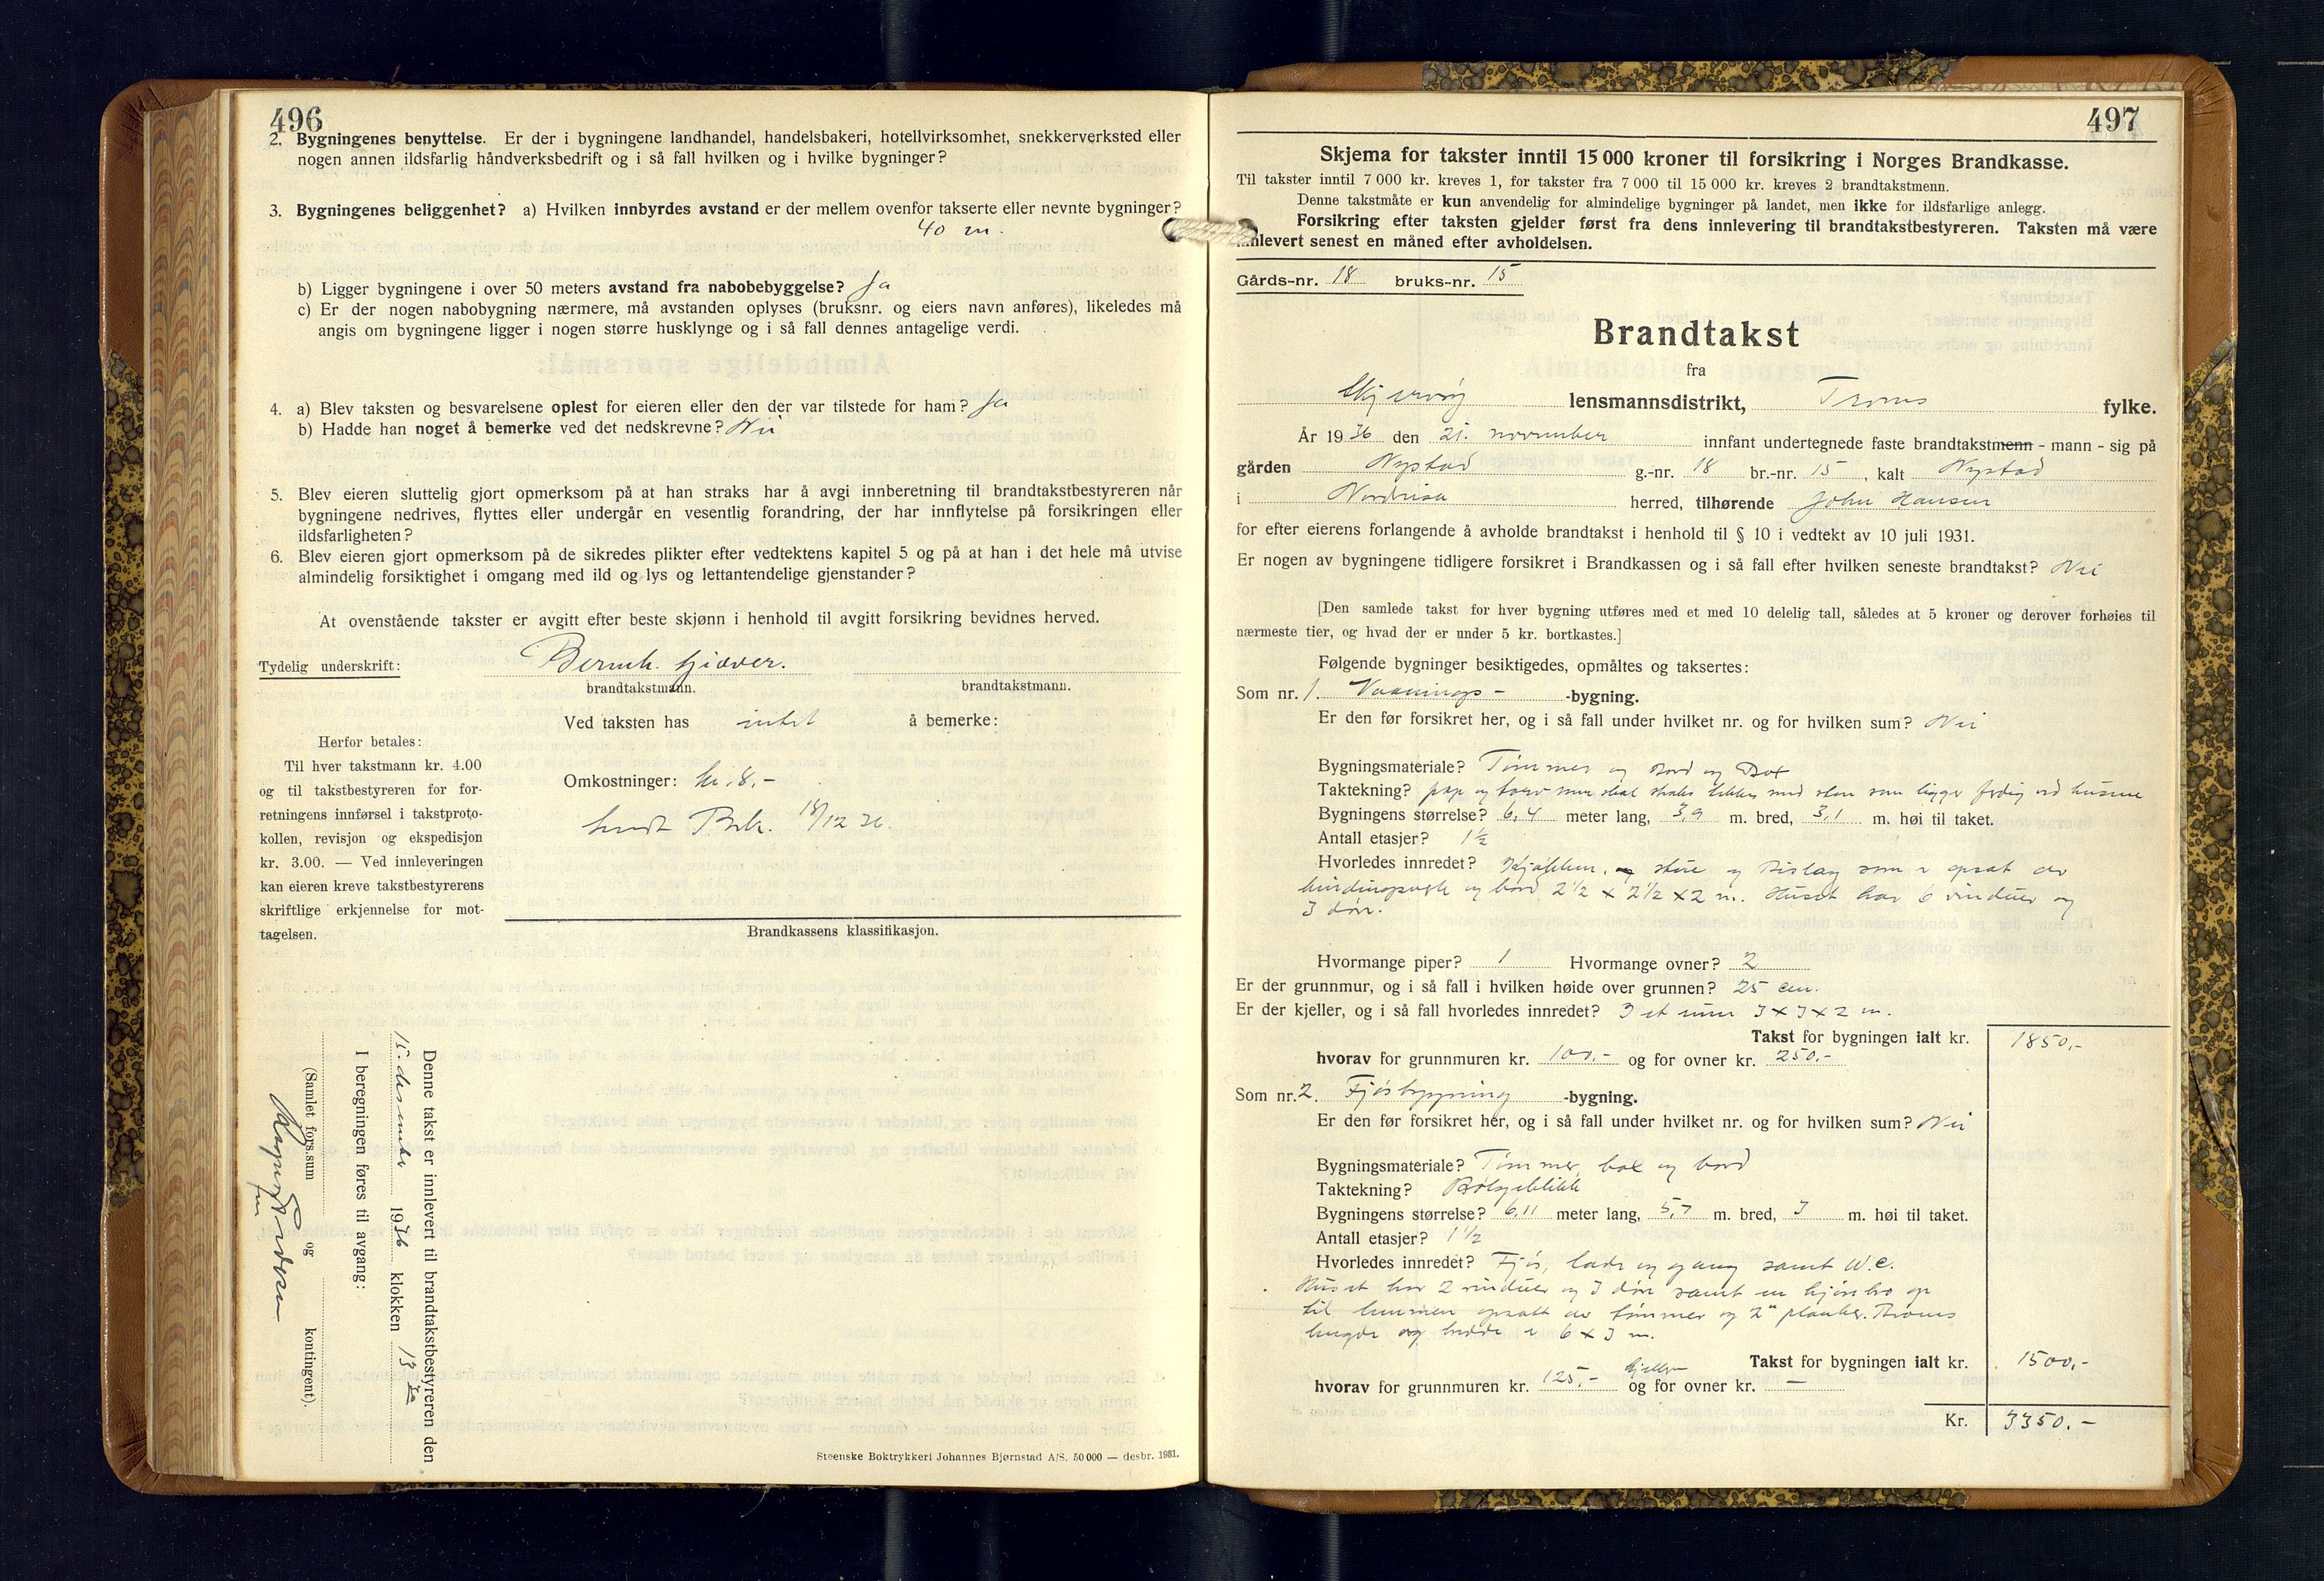 496
2. Bygningenes benyttelse. Er der i bygningene landhandel, handelsbakeri, hotellvirksomhet, snekkerverksted eller
nogen annen ildsfarlig håndverksbedrift og i så fall hvilken og i hvilke bygninger?
3. Bygningenes beliggenhet? a) Hvilken innbyrdes avstand er der mellem ovenfor takserte eller nevnte bygninger?
40 m.
b) Ligger bygningene i over 50 meters avstand fra nabobebyggelse? Ja
c) Er der nogen nabobygning nærmere, må avstanden oplyses (bruksnr. og eiers navn anføres), likeledes må
angis om bygningene ligger i nogen større husklynge og i så fall dennes antagelige verdi.
4. a) Blev taksten og besvarelsene oplest for eieren eller den der var tilstede for ham? Ja
b) Hadde han noget å bemerke ved det nedskrevne? Nei
5. Blev eieren sluttelig gjort opmerksom på at han straks har å avgi innberetning til brandtakstbestyreren når
bygningene nedrives, flyttes eller undergår en vesentlig forandring, der har innflytelse på forsikringen eller
ildsfarligheten?
6. Blev eieren gjort opmerksom på de sikredes plikter efter vedtektens kapitel 5 og på at han i det hele må utvise
almindelig forsiktighet i omgang med ild og lys og lettantendelige gjenstander?
At ovenstående takster er avgitt efter beste skjønn i henhold til avgitt forsikring bevidnes herved.
Tydelig underskrift: Bernh. Gjæver.
brandtakstmann. brandtakstmann.
Ved taksten has intet å bemerke:
Herfor betales:
Til hver takstmann kr. 4.00
og til takstbestyreren for for-
retningens innførsel i takstproto-
kollen, revisjon og ekspedisjon
kr. 3.00. — Ved innleveringen
kan eieren kreve takstbestyrerens
skriftlige erkjennelse for mot-
tagelsen.
Omkostninger: kr. 8,-
Sendt Brk. 18/12 36.
Brandkassens klassifikasjon.
Denne takst er innlevert til brandtakstbestyreren den
15. desember 1936 klokken 13
I beregningen føres til avgang:
(Samlet fors.sum og kontingent).
Steenske Boktrykkeri Johannes Bjørnstad A/S. 50 000 — desbr. 1931.
497
Skjema for takster inntil 15 000 kroner til forsikring i Norges Brandkasse.
Til takster inntil 7 000 kr. kreves 1, for takster fra 7 000 til 15 000 kr. kreves 2 brandtakstmenn.
Denne takstmåte er kun anvendelig for almindelige bygninger på landet, men ikke for ildsfarlige anlegg.
Forsikring efter taksten gjelder først fra dens innlevering til brandtakstbestyreren. Taksten må være
innlevert senest en måned efter avholdelsen.
Gårds-nr. 18 bruks-nr. 15
Brandtakst
fra
Skjervøy lensmannsdistrikt, Troms fylke.
År 1936 den 21. november innfant undertegnede faste brandtakstmenn - mann - sig på
gården Nystad g.-nr. 18 br.-nr. 15, kalt Nystad
i Nordreisa herred, tilhørende John Hansen
for efter eierens forlangende å avholde brandtakst i henhold til § 10 i vedtekt av 10 juli 1931.
Er nogen av bygningene tidligere forsikret i Brandkassen og i så fall efter hvilken seneste brandtakst? Nei
[Den samlede takst for hver bygning utføres med et med 10 delelig tall, således at 5 kroner og derover forhøies til
nærmeste tier, og hvad der er under 5 kr. bortkastes.]
Følgende bygninger besiktigedes, opmåltes og taksertes:
Som nr. 1. Vaanings- -bygning.
Er den før forsikret her, og i så fall under hvilket nr. og for hvilken sum? Nei
Bygningsmateriale? Tømmer og Bord og Box
Taktekning? pap og torv men skal straks tekkes med sten som ligger ferdig ved husene
Bygningens størrelse? 6,4 meter lang, 3,9 m. bred, 3,1 m. høi til taket.
Antall etasjer? 1½
Hvorledes innredet? Kjøkken, og stue og Bislag som er opsat av
bindingsverk og bord 2½ x 2½ x 2 m. Huset har 6 vinduer og
3 døre.
Hvormange piper? 1 Hvormange ovner? 2
Er der grunnmur, og i så fall i hvilken høide over grunnen? 25 cm.
Er der kjeller, og i så fall hvorledes innredet? I et rum 3 x 3 x 2 m.
Takst for bygningen ialt kr. 1850,-
hvorav for grunnmuren kr. 100,- og for ovner kr. 250,-
Som nr. 2. Fjøsbygning -bygning.
Er den før forsikret her, og i så fall under hvilket nr. og for hvilken sum? Nei
Bygningsmateriale? Tømmer, box og bord
Taktekning? Bølgeblikk
Bygningens størrelse? 6,11 meter lang, 5,7 m. bred, 3 m. høi til taket.
Antall etasjer? 1½
Hvorledes innredet? Fjøs, lade og gang samt W.C.
Huset har 2 vinduer og 3 døre samt en kjørebro op
til lemmen opsatt av tømmer og 2" planker. Broens
lengde og bredde er 6 x 3 m.
Takst for bygningen ialt kr. 1500,-
hvorav for grunnmuren kr. 125,- kjeller og for ovner kr. —
Kr. 3350,-